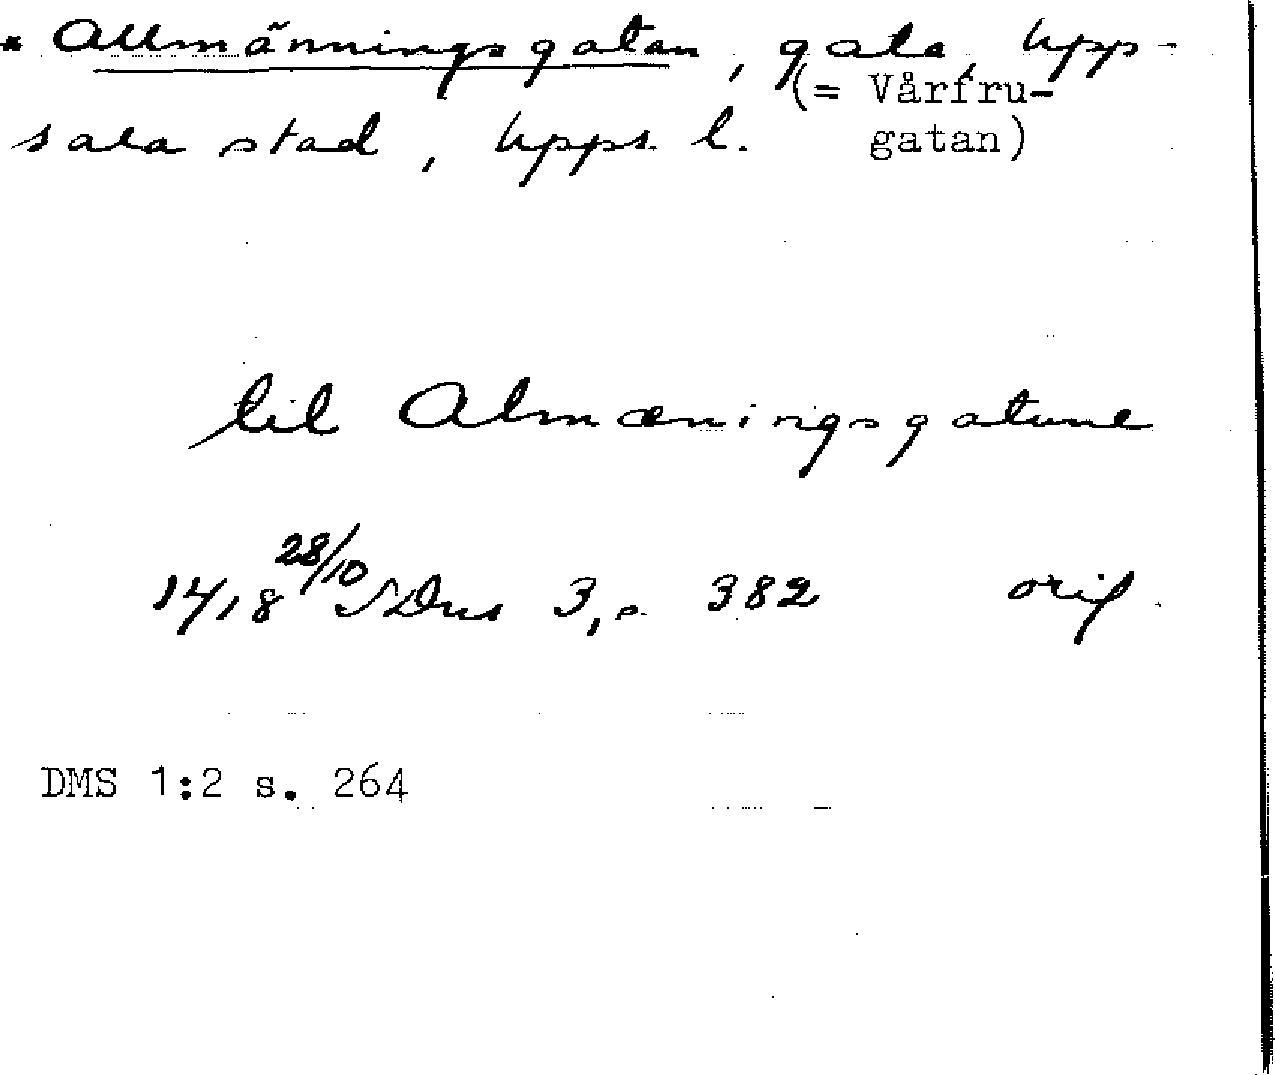 * Allmänningsgatan, gata, Upp-
(= Vårfru-
sala stad, Upps. l.
gatan)
til Almæningsgatune
1418 28/10 SDns 3, s. 382 orig.
DMS 1:2 s. 264